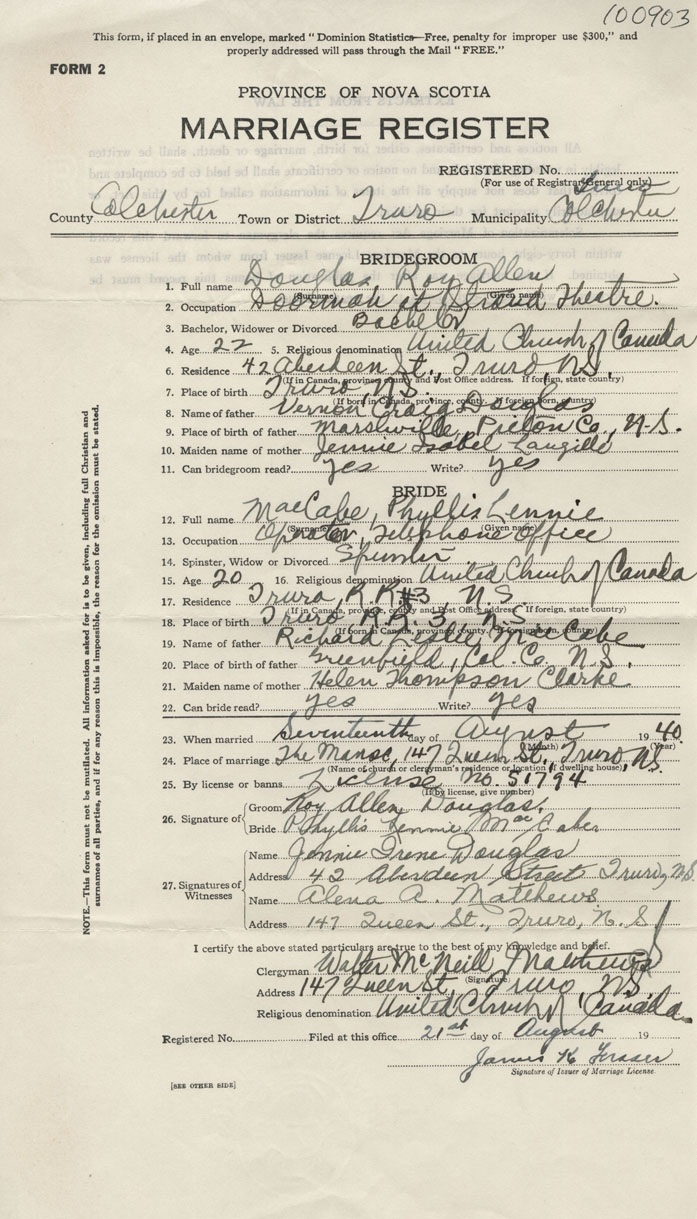 100903
This form, if placed in an envelope, marked "Dominion Statistics—Free, penalty for improper use $300," and
properly addressed will pass through the Mail "FREE."
FORM 2
PROVINCE OF NOVA SCOTIA
MARRIAGE REGISTER
REGISTERED No.
(For use of Registrar General only)
Truro
County Colchester Town or District Truro Municipality Colchester
BRIDEGROOM
1. Full name Douglas Roy Allen
(Surname) (Given name)
2. Occupation Doorman at Strand Theatre.
3. Bachelor, Widower or Divorced Bachelor
4. Age 22 5. Religious denomination United Church of Canada
6. Residence 42 Aberdeen St., Truro, N.S.
(If in Canada, province, county and Post Office address. If foreign, state country)
7. Place of birth Truro, N.S.
(If born in Canada, province, county. If foreign born, country)
8. Name of father Vernon Craig Douglas
9. Place of birth of father Marshville, Pictou Co., N.S.
10. Maiden name of mother Jennie Isabel Langille
11. Can bridegroom read? yes Write? yes
BRIDE
12. Full name MacCabe, Phyllis Lennie
(Surname) (Given name)
13. Occupation Operator, Telephone Office
14. Spinster, Widow or Divorced Spinster
15. Age 20 16. Religious denomination United Church of Canada
17. Residence Truro, R.R.#3, N.S
(If in Canada, province, county and Post Office address. If foreign, state country)
18. Place of birth Truro, R.R. 3, N.S.
(If born in Canada, province, county. If foreign born, country)
19. Name of father Richard Leslie MacCabe
20. Place of birth of father Greenfield, Col. Co. N.S.
21. Maiden name of mother Helen Thompson Clarke
22. Can bride read? yes Write? yes
23. When married Seventeenth day of August 1940
(Month) (Year)
24. Place of marriage The Manse, 147 Queen St., Truro, N.S.
(Name of church or clergyman's residence or location if dwelling house)
25. By license or banns License No. 51794
(If by license, give number)
26. Signature of
Groom Roy Allen Douglas.
Bride Phyllis Lennie MacCabe
27. Signatures of Witnesses
Name Jennie Irene Douglas
Address 42 Aberdeen Street Truro, N.S.
Name Alena A. Matthews
Address 147 Queen St., Truro, N.S
I certify the above stated particulars are true to the best of my knowledge and belief.
Clergyman Walter McNeill Matthews
(Signature)
Address 147 Queen St., Truro, N.S.
Religious denomination United Church of Canada.
Registered No. Filed at this office 21st day of August 19
James K Fraser
Signature of Issuer of Marriage License.
[SEE OTHER SIDE]
NOTE.—This form must not be mutilated. All information asked for is to be given, including full Christian and
surnames of all parties, and if for any reason this is impossible, the reason for the omission must be stated.